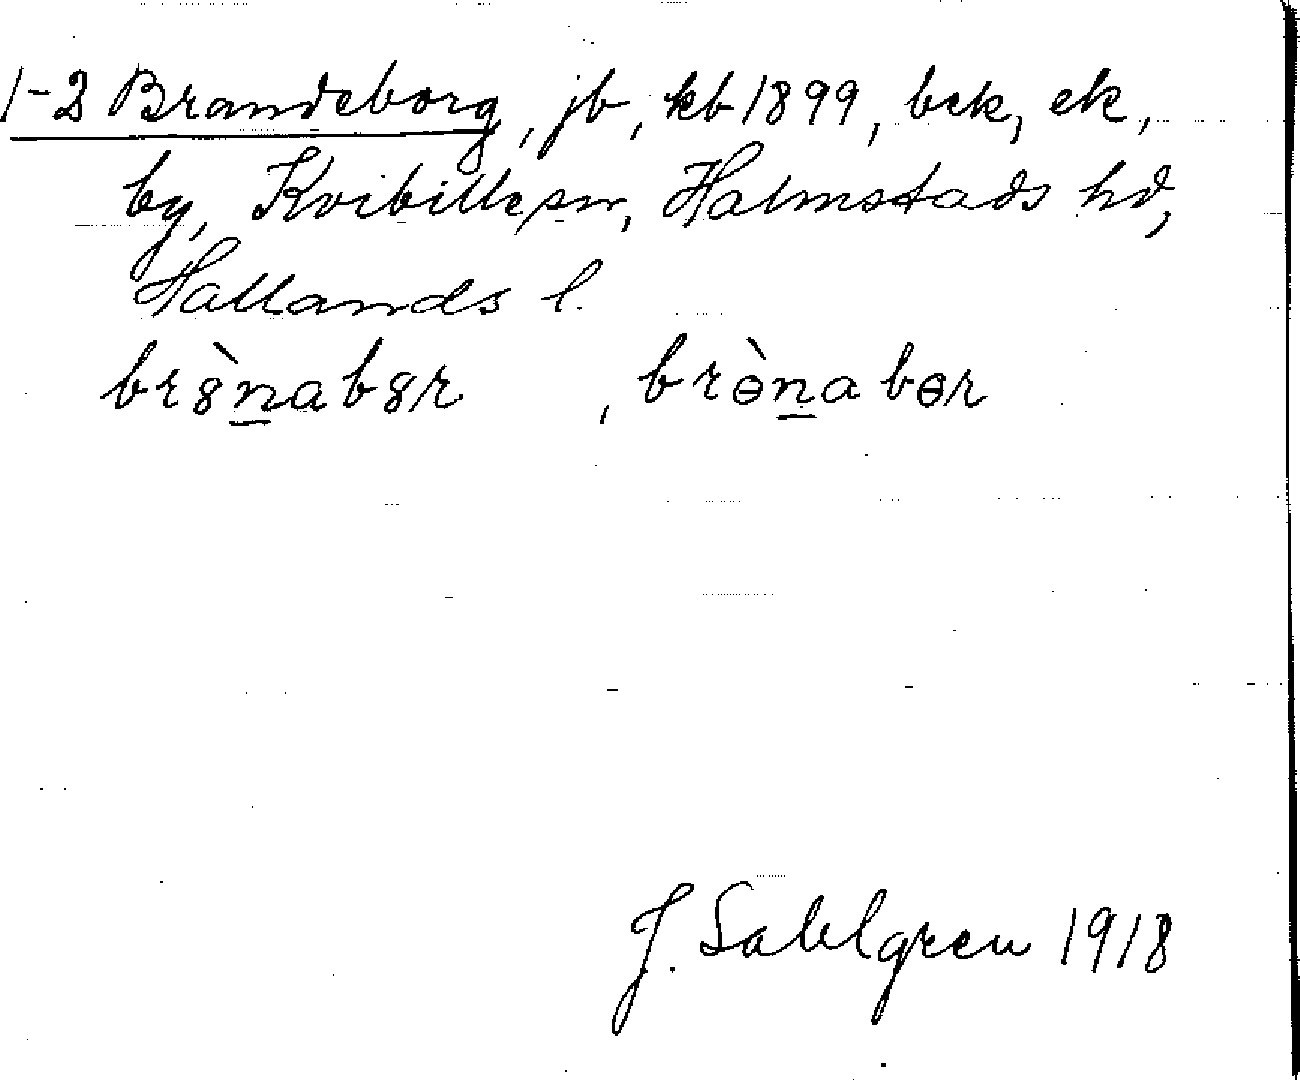 1-2 Brandeborg, jb, kb 1899, bek, ek,
by, Kvibille sn, Halmstads hd,
Hallands l.
br8̀n̲ab8r , brɵ̀n̲abɵr
J. Sahlgren 1918